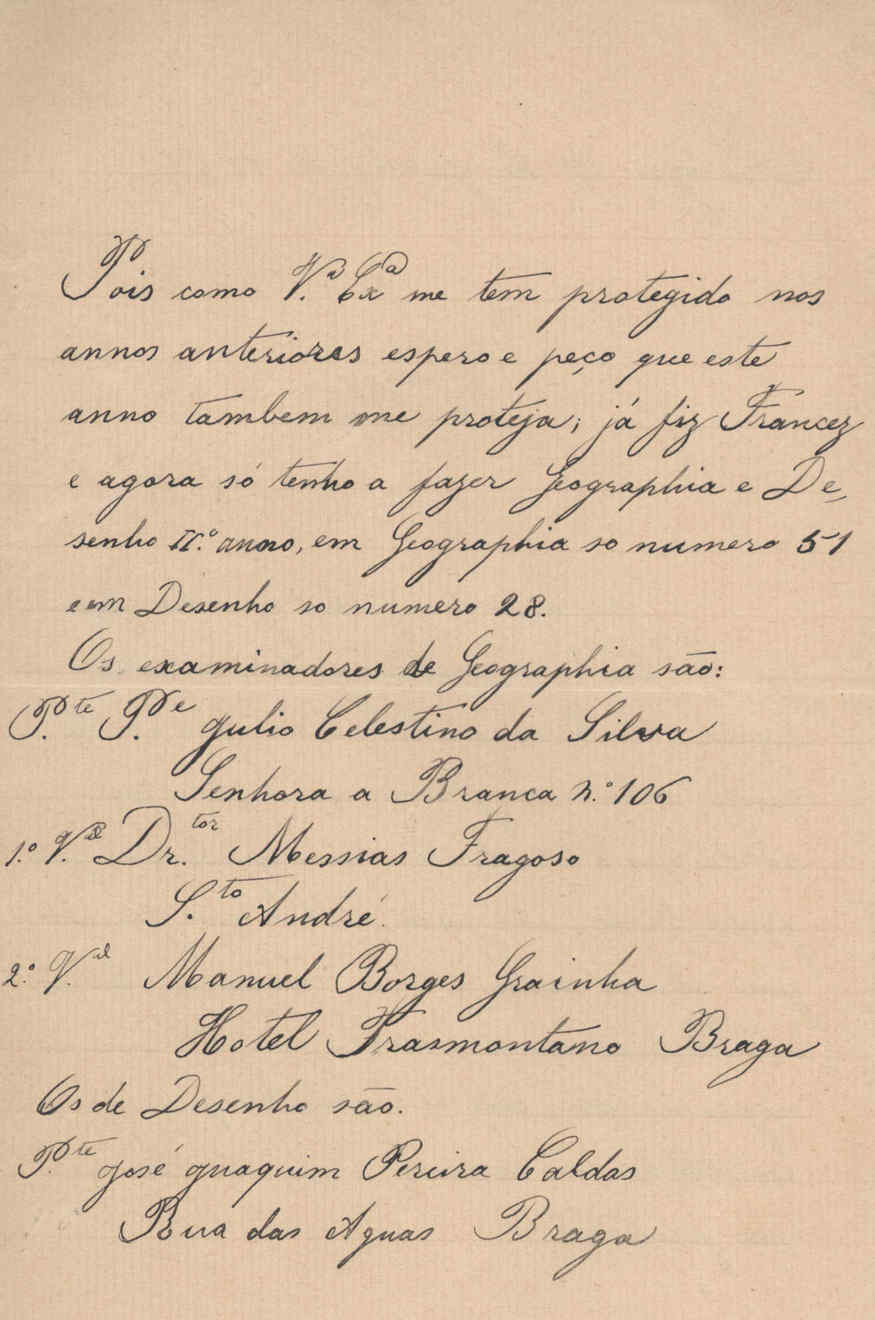 Pois como V.ª Exª me tem protegido nos
annos anteriores espero e peço que este
anno tambem me proteja; já fiz Francez
e agora só tenho a fazer Geographia e De-
senho II.º anno, em Geographia so numero 51
e em Desenho so numero 28.
Os examinadores de Geographia são:
P.te P.e Julio Celestino da Silva
Senhora a Branca N.º 106
1.º V.al Dr.tor Messias Fragoso
S.to André.
2.º V.al Manuel Borges Grainha
Hotel Trasmontano Braga
Os de Desenho são.
P.te José Juaquim Pereira Caldas
Rua das Aguas Braga